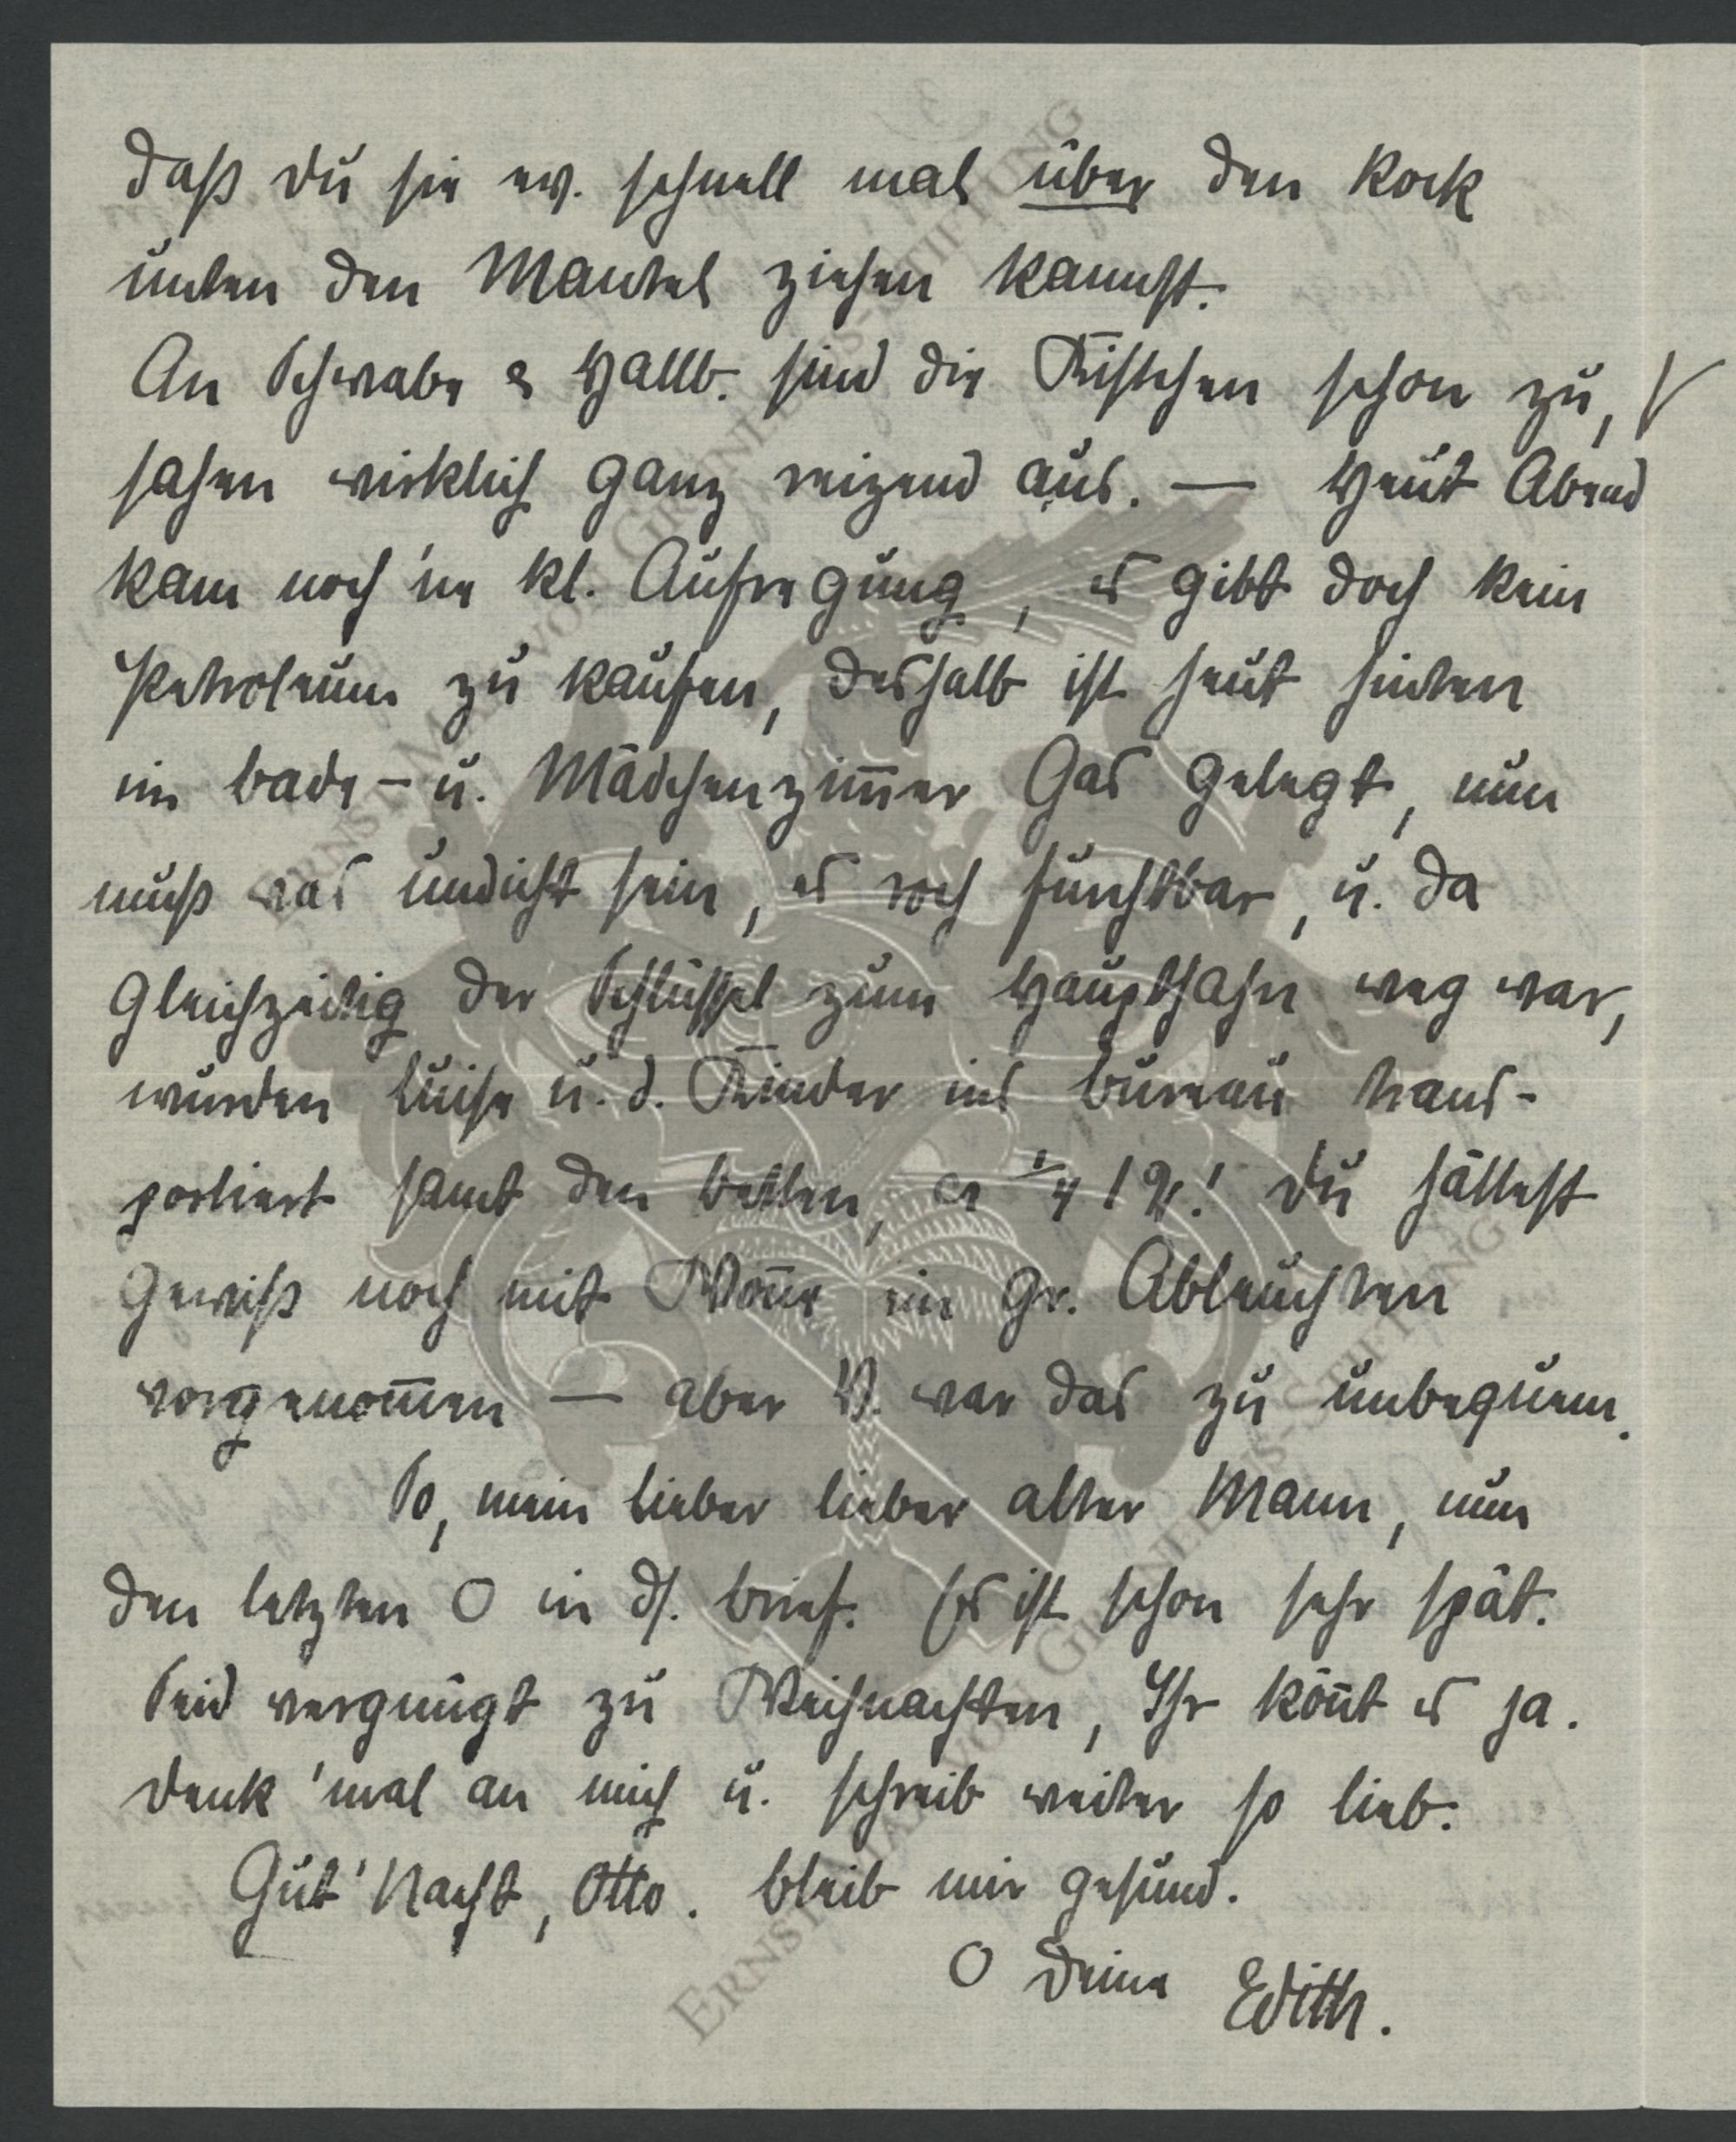 daß Du sie ev. schnell mal über den Rock
unter den Mantel ziehen kannst.
An Schwabe & Hallb. sind die Kistchen schon zu,
sahen wirklich ganz reizend aus. — Heut Abend
kam noch 'ne kl. Aufregung, es gibt doch kein
Petroleum zu kaufen, deshalb ist heut hinten
im Bade- u. Mädchenzim̅er Gas gelegt, nun
muß was undicht sein, es roch furchtbar, u. da
gleichzeitig der Schlüssel zum Haupthahn weg war,
wurden Luise u. d. Kinder ins Bureau trans-
portiert samt den Betten, ca ¼ 12! Du hättest
gewiß noch mit Won̅e ein gr. Ableuchten
vorgenom̅en — aber V. war das zu unbequem.
So, mein lieber lieber alter Mann, nun
den letzten O in ds. Brief. Es ist schon sehr spät.
Seid vergnügt zu Weihnachten, Ihr kön̅t es ja.
Denk 'mal an mich u. schreib weiter so lieb.
Gut' Nacht, Otto. Bleib mir gesund.
O Deine Edith.
ERNST MAX VON GRUNELIUS-STIFTUNG
ERNST MAX VON GRUNELIUS-STIFTUNG